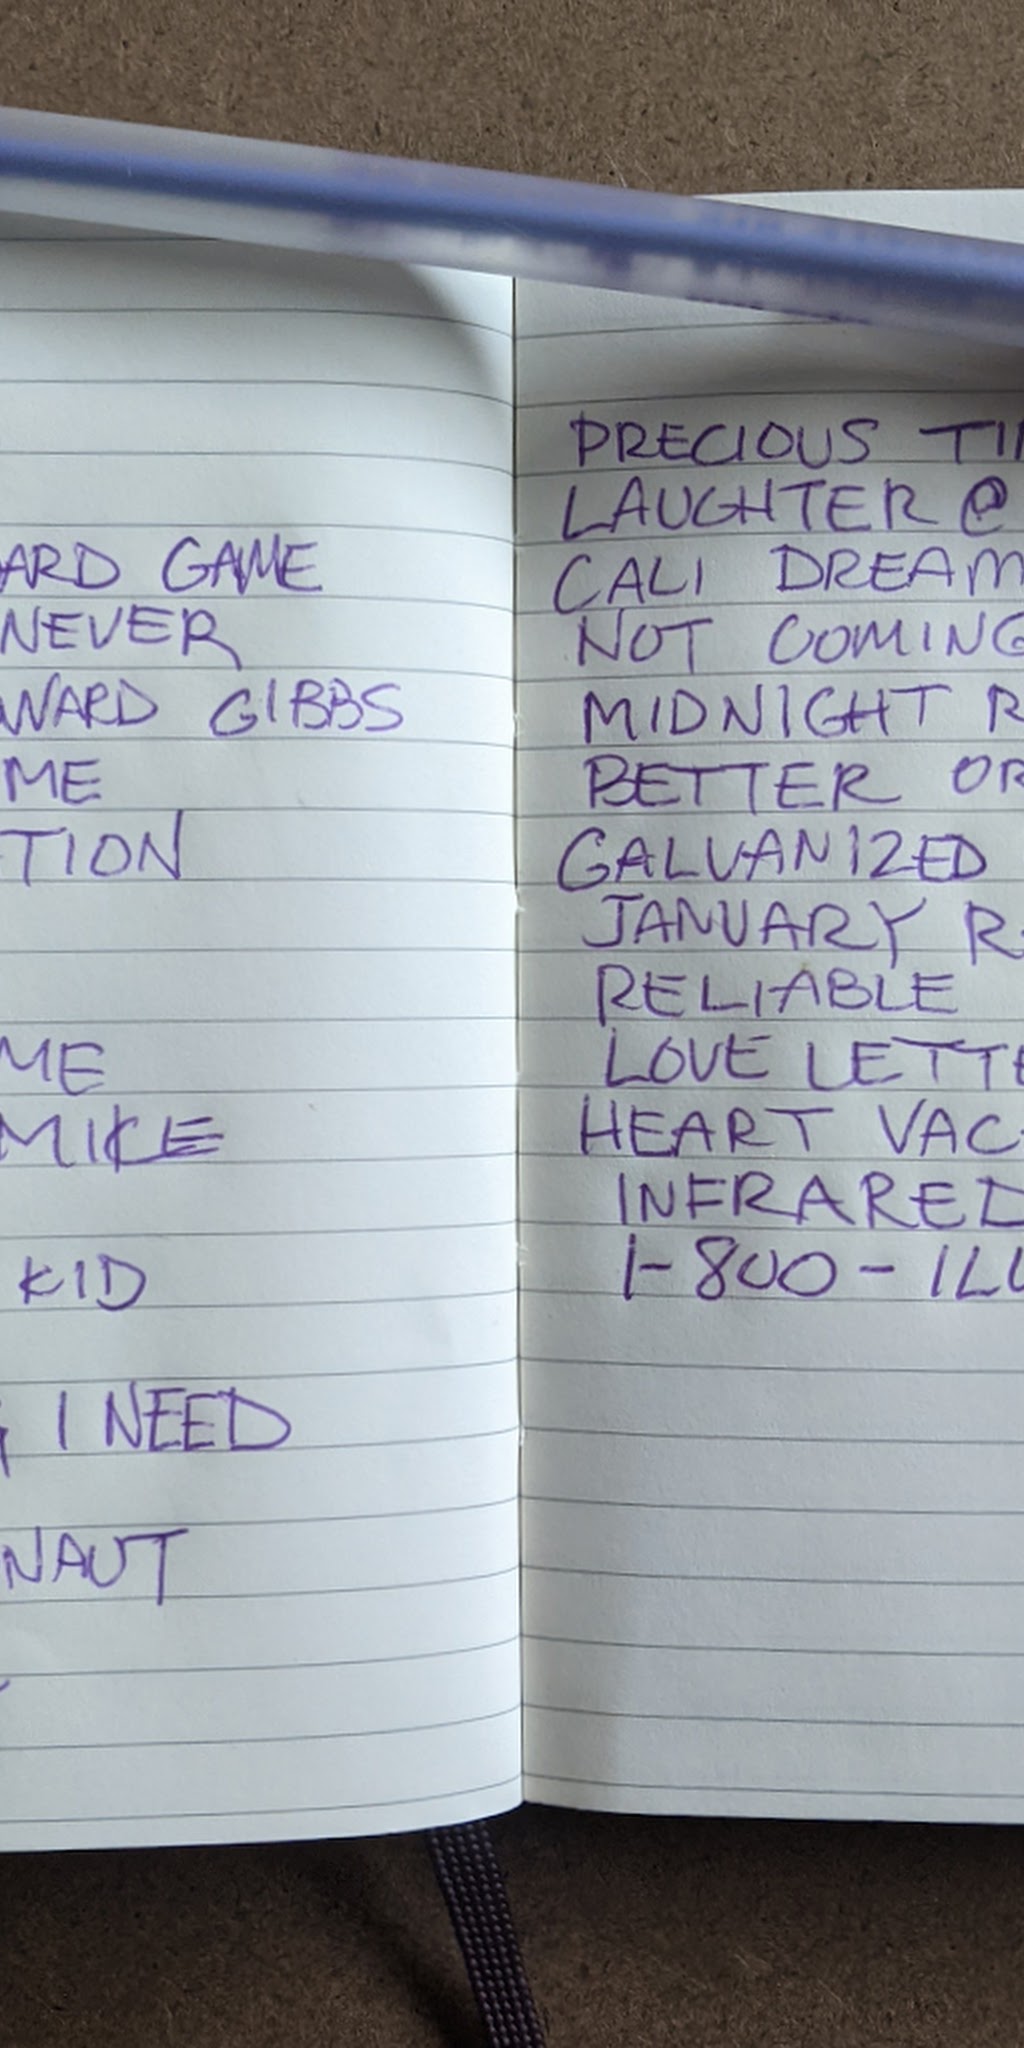 ARD GAME
NEVER
WARD GIBBS
ME
TION
ME
MIKE
KID
I NEED
NAUT
PRECIOUS TI
LAUGHTER @
CALI DREAM
NOT COMING
MIDNIGHT R
BETTER OR
GALVANIZED
JANUARY R
RELIABLE
LOVE LETTE
HEART VAC
INFRARED
1-800-ILL